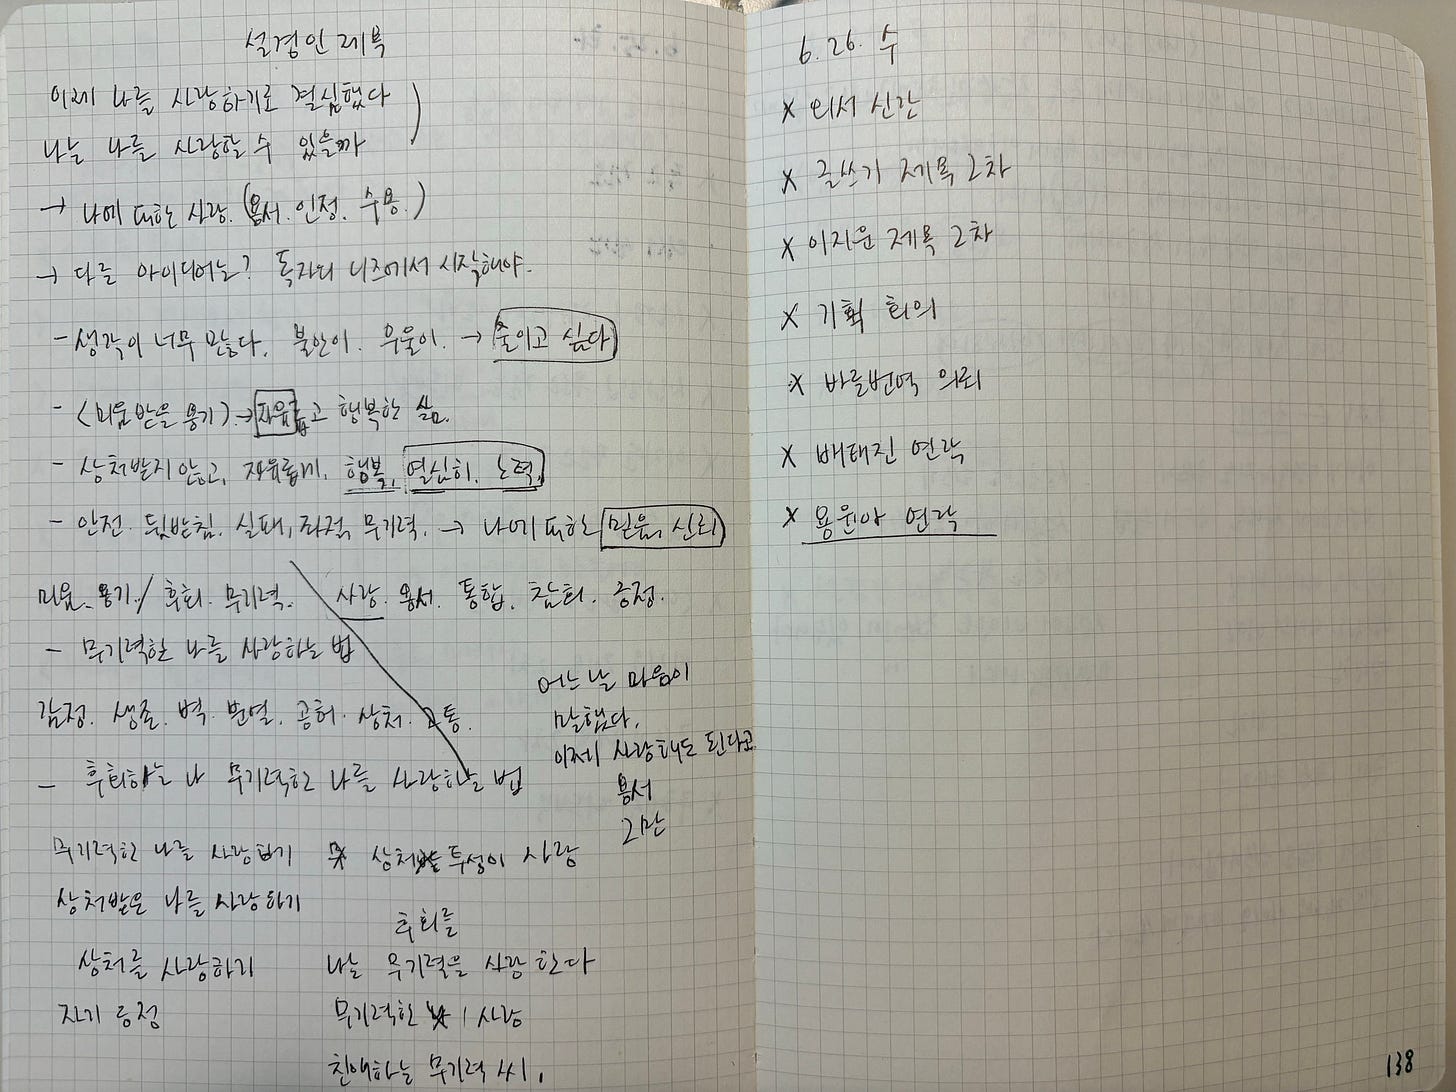 설경인 제목
이제 나를 사랑하기로 결심했다
나는 나를 사랑할 수 있을까
→ 나에 대한 사랑. (용서. 인정. 수용.)
→ 다른 아이디어는? 독자의 니즈에서 시작해야.
- 생각이 너무 많다. 불안이. 우울이. → 줄이고 싶다
- <미움받을 용기> → 자유롭고 행복한 삶.
- 상처받지 않고, 자유롭게, 행복, 열심히, 노력,
- 안전. 뒷받침. 실패, 좌절, 무기력. → 나에 대한 믿음, 신뢰
미움. 용기. / 후회. 무기력. 사랑. 용서. 통합. 참회. 긍정.
- 무기력한 나를 사랑하는 법
감정. 생존. 벽. 분열. 공허. 상처. 고통.
- 후회하는 나 무기력한 나를 사랑하는 법
어느 날 마음이
말했다.
이제 사랑해도 된다고
용서
그만
무기력한 나를 사랑하기 상처 투성이 사랑
상처받은 나를 사랑하기
후회를
상처를 사랑하기 나는 무기력을 사랑한다
자기 긍정 무기력한 사랑
친애하는 무기력 씨,
6. 26. 수
× 외서 신간
× 글쓰기 제목 2차
× 이지운 제목 2차
× 기획 회의
× 바른번역 의뢰
× 배태진 연락
× 용원아 연락
138